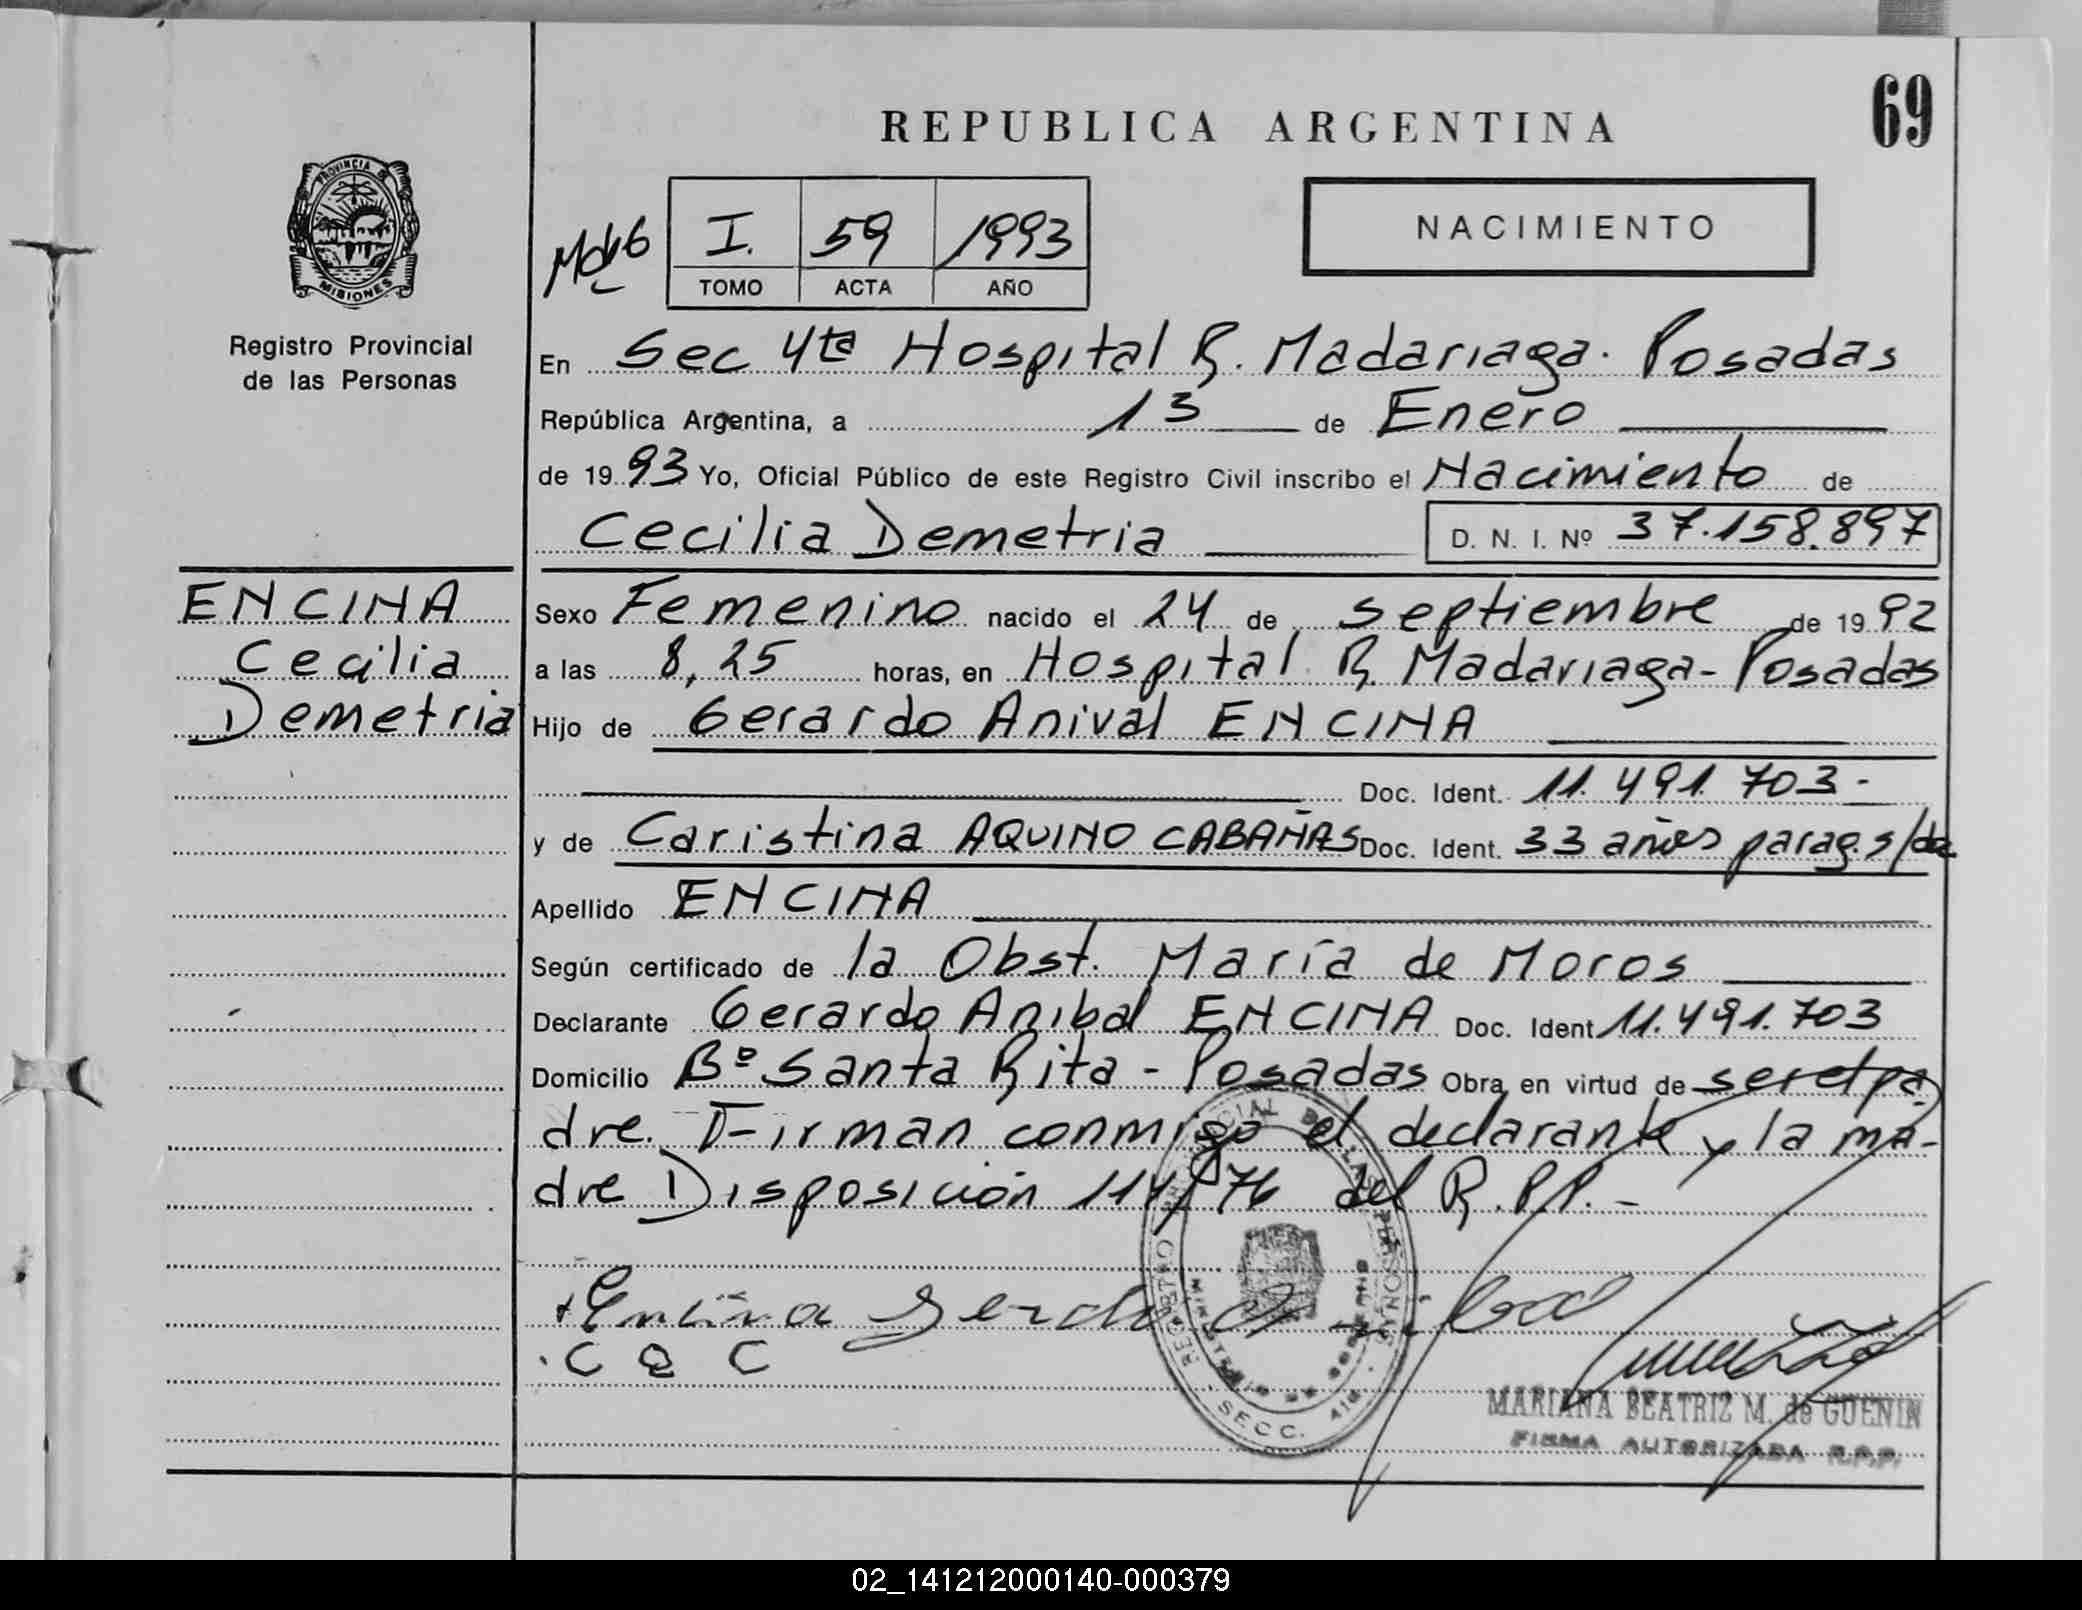 69
REPUBLICA ARGENTINA
PROVINCIA DE
MISIONES
Registro Provincial
de las Personas
I. 59 1993
TOMO ACTA AÑO
NACIMIENTO
En Sec 4ta Hospital R. Madariaga. Posadas
República Argentina, a 13 de Enero
de 1993 Yo, Oficial Público de este Registro Civil inscribo el Nacimiento de
Cecilia Demetria D. N. I. Nº 37.158.897
ENCINA
Cecilia
Demetria
Sexo Femenino nacido el 24 de septiembre de 1992
a las 8,25 horas, en Hospital R. Madariaga - Posadas
Hijo de Gerardo Anival ENCINA
Doc. Ident. 11.491.703-
y de Caristina AQUINO CABAÑAS Doc. Ident. 33 años parag. s/doc
Apellido ENCINA
Según certificado de la Obst. María de Moros
Declarante Gerardo Anibal ENCINA Doc. Ident 11.491.703
Domicilio Bº Santa Rita - Posadas Obra en virtud de ser el pa-
dre. Firman conmigo el declarante y la ma-
dre Disposición 114/76 del R.P.P.-
Encina Gerardo Anibal
C Q C
REGISTRO PROVINCIAL DE LAS PERSONAS
MINISTERIO DE GOBIERNO
SECC. 4ta
MARIANA BEATRIZ M. de GUENIN
FIRMA AUTORIZADA R.P.P.
02_141212000140-000379